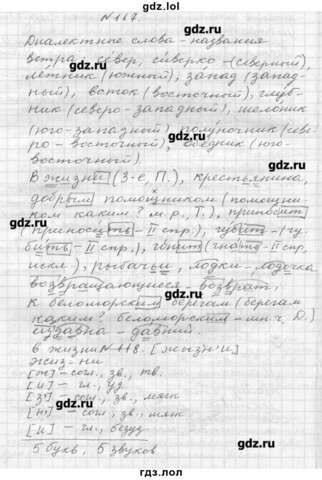 gdz.lol
№ 117.
Диалектные слова - названия
ветра - север, сиверко - (северный),
летник (южный), запад (запад-
ный), восток (восточный), глуб-
ник (северо-западный), шелоник
(юго-западный), полуночник (севе-
ро - восточный), обедник (юго-
восточный).
В жизни (3-е, П.), крестьянина,
добрым помощником (помощни-
ком каким? м.р., Т.), приносит
(приносить - II спр.), губит - (гу-
бить - II спр.), гонит (гнать - II спр.,
искл), рыбачьи, лодки - лодочка
возвращающиеся - возврат,
к беломорским берегам (берегам
каким? беломорским - мн.ч. Д.)
издавна - давний.
в жизни №118. [жыз'н'и]
жиз-ни
[ж] - согл., зв., тв.
[и] - гл., уд
[з'] - согл., зв., мягк
[н'] - согл., зв., мягк
[и] - гл., безуд
5 букв, 5 звуков
gdz.lol
gdz.lol
gdz.lol
gdz.lol
gdz.lol
gdz.lol
gdz.lol
gdz.lol
гдз.лол